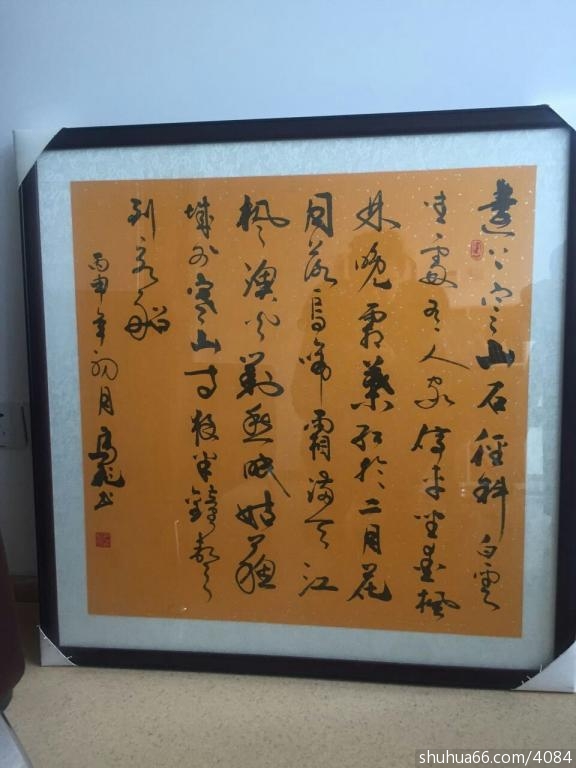 遠上寒山石徑斜白雲
生處有人家停車坐愛楓
林晚霜葉紅於二月花
月落烏啼霜滿天江
楓漁火對愁眠姑蘇
城外寒山寺夜半鐘聲
到客船
丙申年初月高书
shuhua66.com/4084